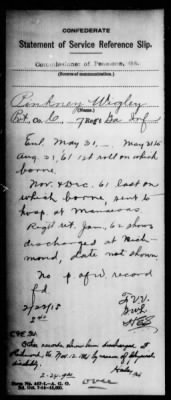 CONFEDERATE
Statement of Service Reference Slip.
Commissioner of Pensions, Ga.
(Source of communication.)
Pinkney Wigley
(Name.)
Pvt. Co. C, 7 Regt Ga Inf
Ent. May 31, May 31 to
Aug. 31, 61 1st roll on which
borne.
Nov. & Dec. 61 last on
which borne, sent to
hosp. at Manassas.
Regt ret. Jan. 62 shows
discharged at Rich-
mond, date not shown.
No p of w record
fd
2/23/15
Other records show him discharged at
Richmond, Va Nov. 12, 1861 by reason of physical
disability.
2-24-
Form No. 467-1—A. G. O.
over